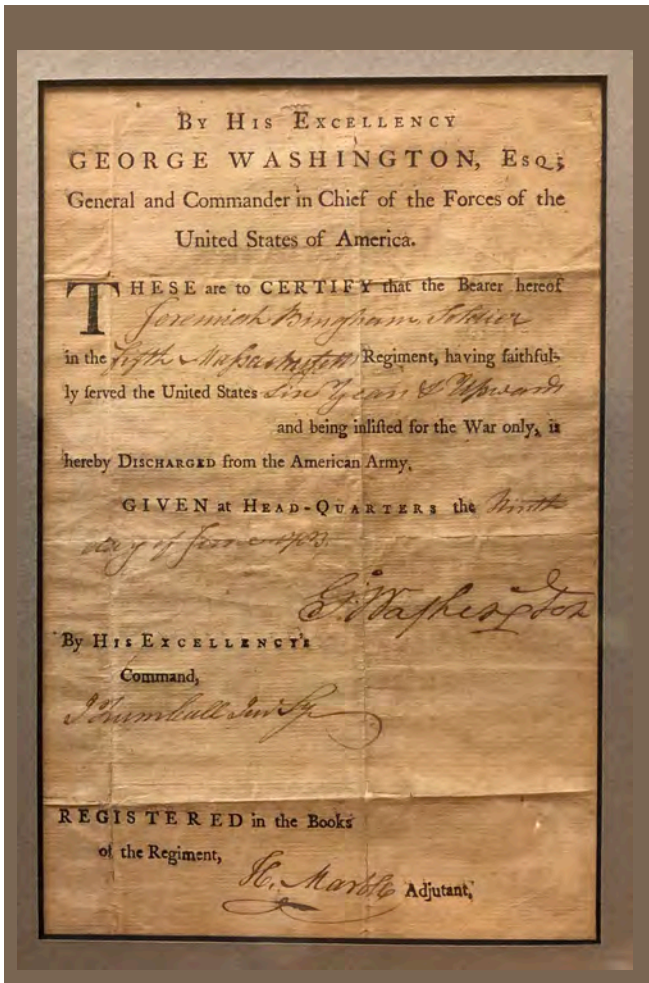 BY HIS EXCELLENCY
GEORGE WASHINGTON, ESQ;
General and Commander in Chief of the Forces of the
United States of America.
THESE are to CERTIFY that the Bearer hereof
Jeremiah Bingham, Soldier
in the fifth Massachusetts Regiment, having faithful-
ly served the United States Six Years & Upwards
and being inlisted for the War only, is
hereby DISCHARGED from the American Army.
GIVEN at HEAD-QUARTERS the Ninth
day of June 1783.
G:Washington
By HIS EXCELLENCY'S
Command,
J Trumbull Junr Sy
REGISTERED in the Books
of the Regiment,
H. Marble Adjutant,